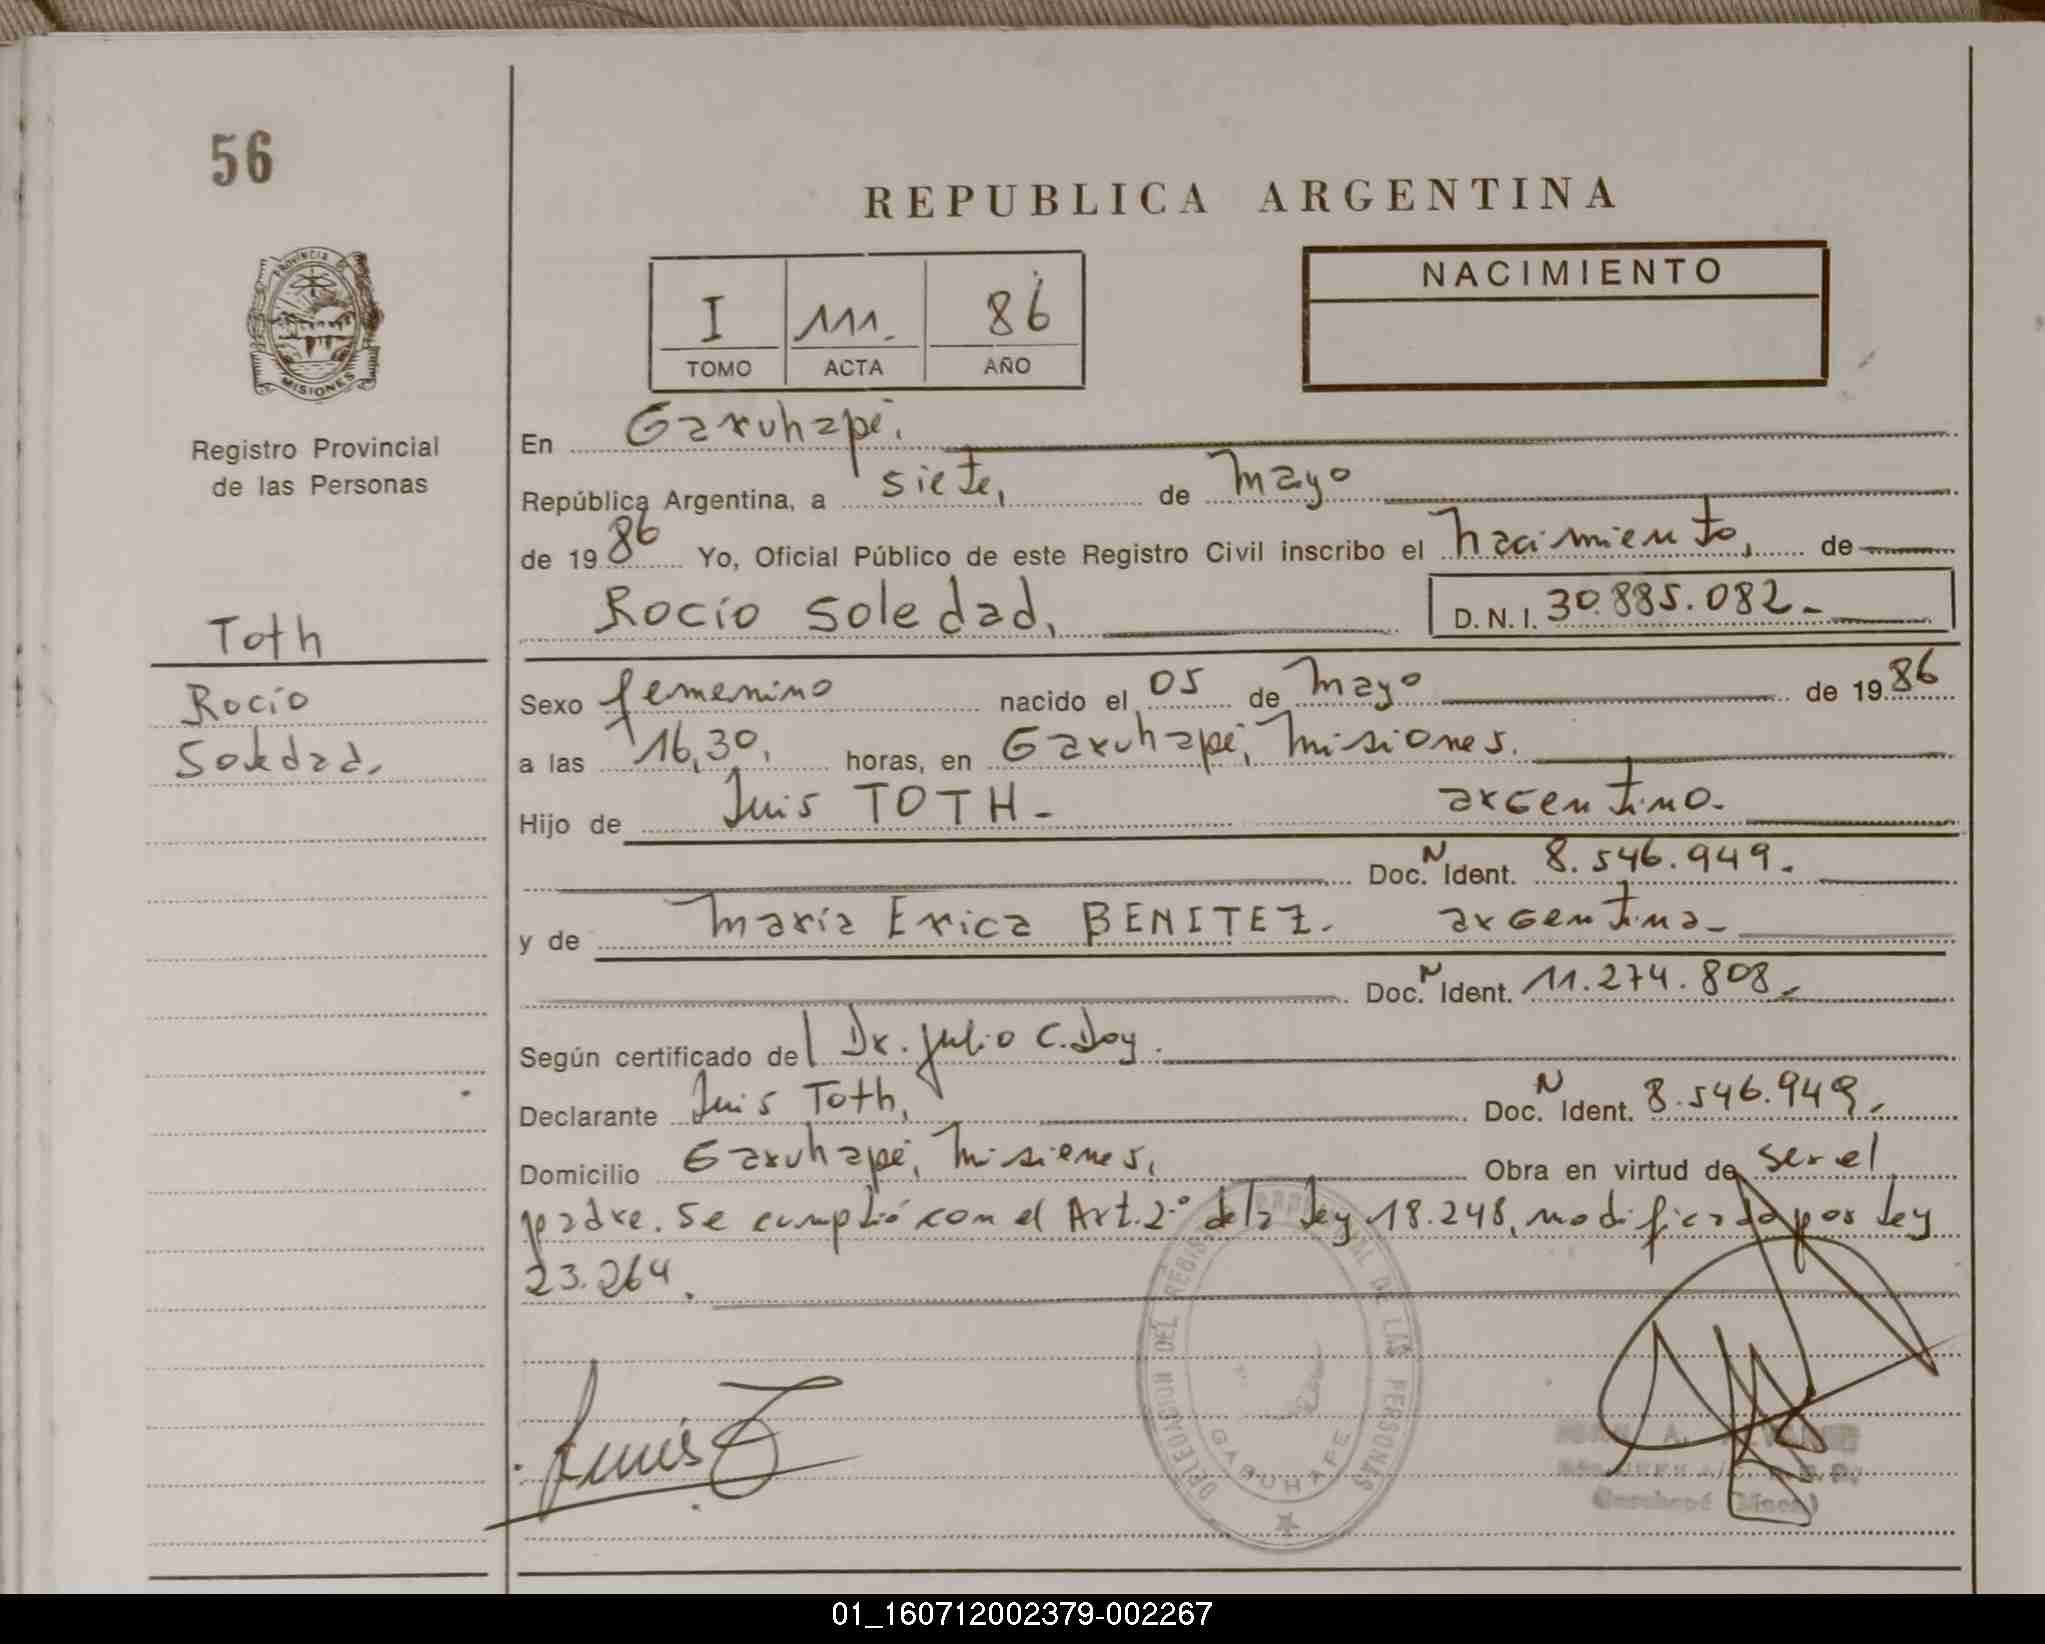 56
REPUBLICA ARGENTINA
PROVINCIA DE
MISIONES
Registro Provincial
de las Personas
I 111. 86
TOMO ACTA AÑO
NACIMIENTO
En Garuhapé,
República Argentina, a siete, de mayo
de 1986 Yo, Oficial Público de este Registro Civil inscribo el nacimiento, de
Rocío Soledad, D. N. I. 30.885.082.-
Toth
Rocío
Soledad,
Sexo femenino nacido el 05 de mayo de 1986
a las 16,30, horas, en Garuhapé, Misiones.
Hijo de Luis TOTH- argentino.
Doc. N Ident. 8.546.949.
y de María Erica BENITEZ. argentina-
Doc. N Ident. 11.274.808,
Según certificado del Dr. Julio C. Doy.
Declarante Luis Toth, Doc. N Ident. 8.546.949,
Domicilio Garuhapé, Misiones, Obra en virtud de ser el
padre. Se cumplió con el Art. 2º de la Ley 18.248, modificada por Ley
23.264.
Luis T
DELEGACION DEL REGISTRO PROVINCIAL DE LAS PERSONAS
GARUHAPE
Garuhapé (Mnes.)
01_160712002379-002267